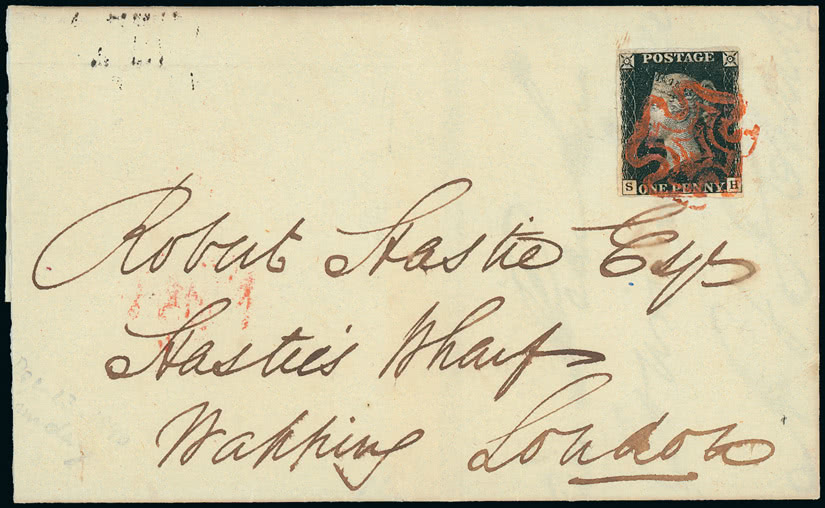 POSTAGE
S ONE PENNY H
Robert Hastie Esqr
Hastie's Wharf
Wapping London